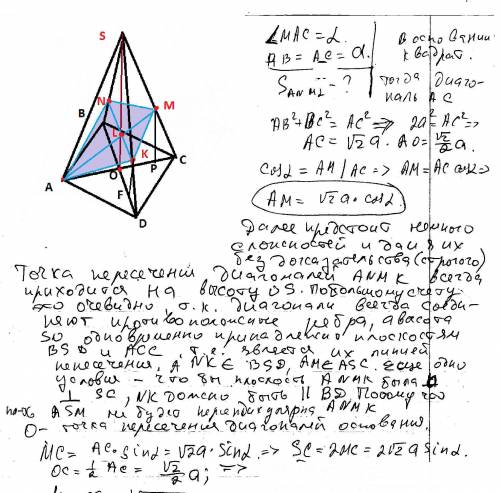 S
N
M
B
L
K
A
O
P
C
F
D
∠MAC = α.
AB = AC = a.
S ANML - ?
в основании
квадрат.
тогда диаго-
наль AC
AB² + BC² = AC² => 2a² = AC² =>
AC = √2 a. AO = √2/2 a.
cosα = AM / AC => AM = AC cosα =>
AM = √2 a · cosα.
Далее предстоит немного
сложностей и дам я их
без доказательства (строгого)
Точка пересечения диагоналей ANMK всегда
приходится на высоту OS. По большому счету
это очевидно, т.к. диагонали всегда соеди-
няют противоположные ребра, а высота
SO одновременно принадлежит плоскостям
BSD и ACC, т.е. является их линией
пересечения, а NK ∈ BSD, AM ∈ ASC. еще одно
условие - что бы плоскость ANMK была
⊥ SC, NK должно быть || BD. Потому что
ASM не будет перпендикулярна ANMK
O - точка пересечения диагоналей основания.
MC = AC · sinα = √2 a · sinα. => SC = 2MC = 2√2 a sinα.
OC = ½ AC = √2/2 a; =>